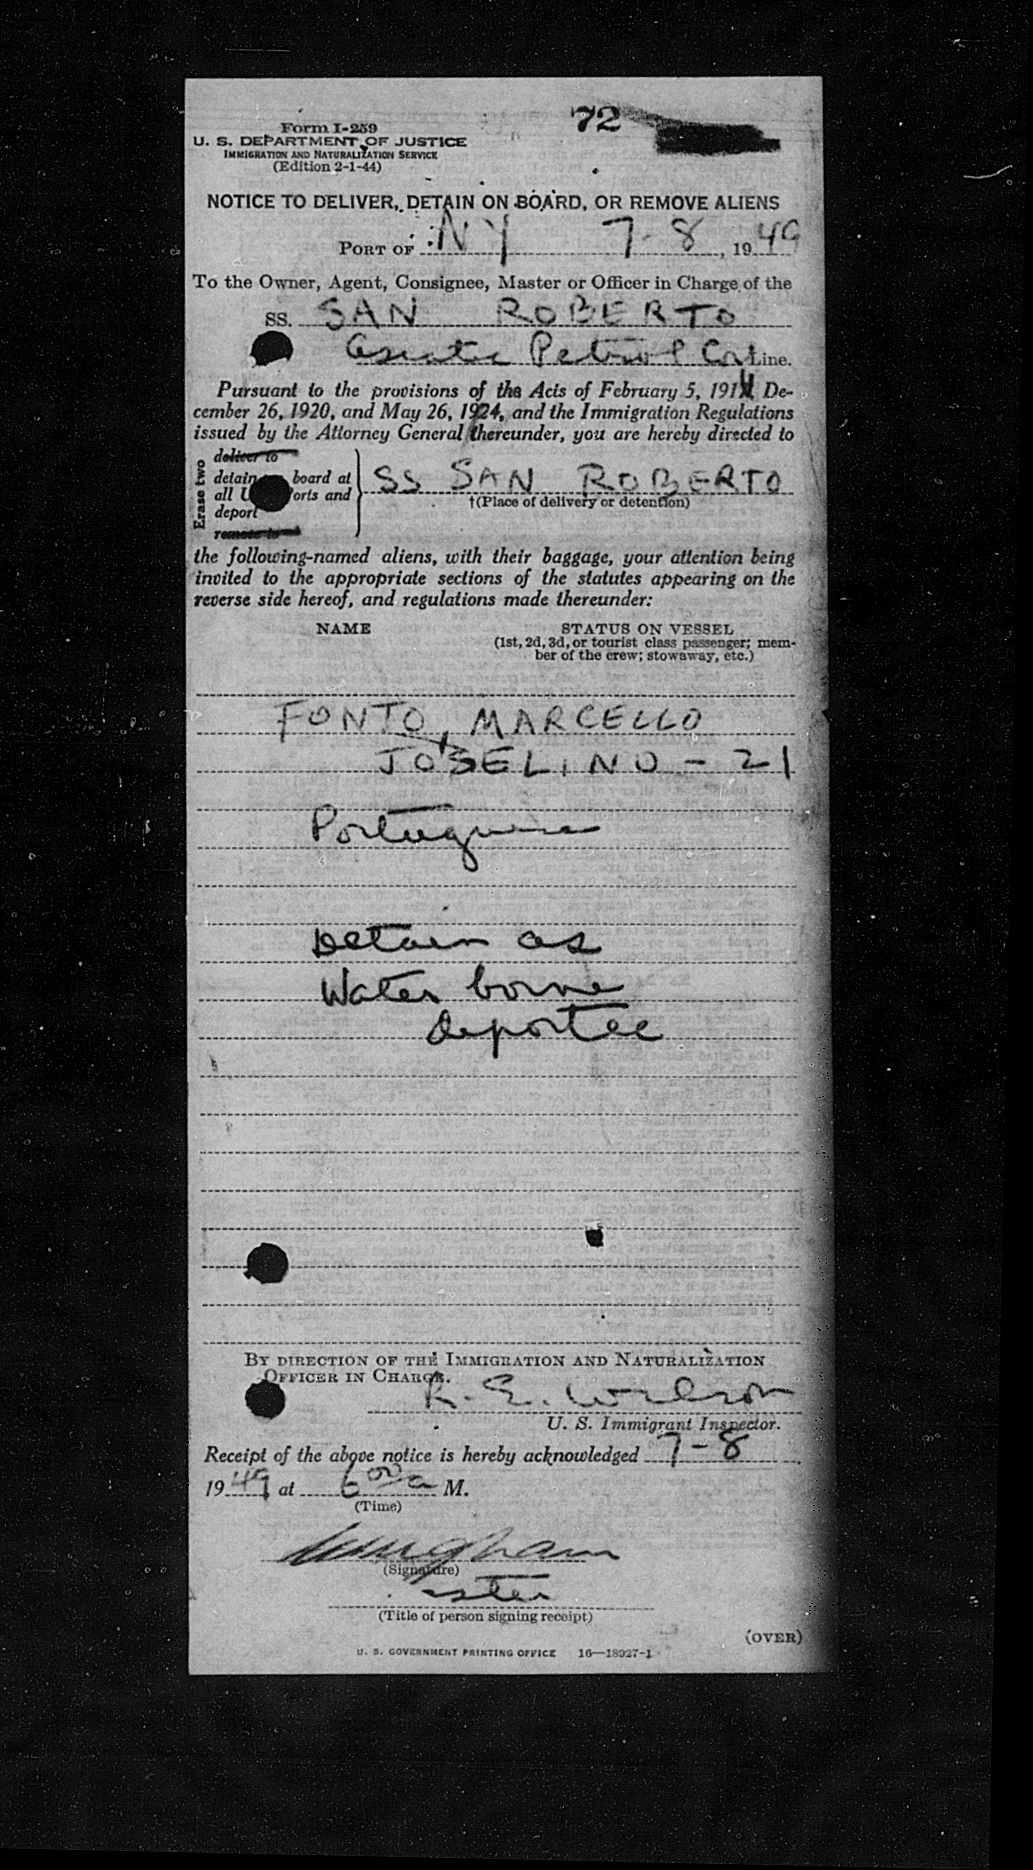 72
Form I-259
U. S. DEPARTMENT OF JUSTICE
IMMIGRATION AND NATURALIZATION SERVICE
(Edition 2-1-44)
NOTICE TO DELIVER, DETAIN ON BOARD, OR REMOVE ALIENS
PORT OF NY 7-8, 1949
To the Owner, Agent, Consignee, Master or Officer in Charge of the
SS. SAN ROBERTO
Asiatic Petrol Co Line.
Pursuant to the provisions of the Acts of February 5, 191 De-
cember 26, 1920, and May 26, 1924, and the Immigration Regulations
issued by the Attorney General thereunder, you are hereby directed to
Erase two
deliver to
detain board at
all U orts and
deport
remove to
SS SAN ROBERTO
†(Place of delivery or detention)
the following-named aliens, with their baggage, your attention being
invited to the appropriate sections of the statutes appearing on the
reverse side hereof, and regulations made thereunder:
NAME STATUS ON VESSEL
(1st, 2d, 3d, or tourist class passenger; mem-
ber of the crew; stowaway, etc.)
FONTO, MARCELLO
JOSELINO - 21
Portuguese
Detain as
Water borne
deportee
BY DIRECTION OF THE IMMIGRATION AND NATURALIZATION
OFFICER IN CHARGE.
R. E. Wilson
U. S. Immigrant Inspector.
Receipt of the above notice is hereby acknowledged 7-8,
1949 at 6 00 a M.
(Time)
(Signature)
(Title of person signing receipt)
(OVER)
U. S. GOVERNMENT PRINTING OFFICE 16—18927-1